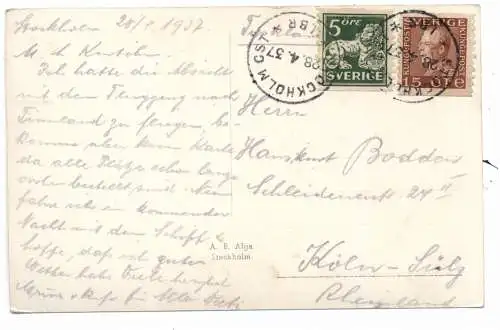 Stockholm 28/4 1937
M. d. 
Ich hatte die Absicht
mit dem Flugzeug nach
Finnland zu fliegen, be-
komme aber kein Karte
da alle Plätze schon lange
vorher bestellt sind. Nun
fahre ich in kommender
Nacht mit dem Schiff &
hoffe, daß ich gutes
Wetter habe. Viele herzl.
Grüsse
5 ÖRE
SVERIGE
SVERIGE
15 ÖRE
STOCKHOLM
28.4.37
Herrn
Hanskurt Bodden
Schleidenerstr. 24 II
Köln-Sülz
Rheinland
A. B. Alja
Stockholm.